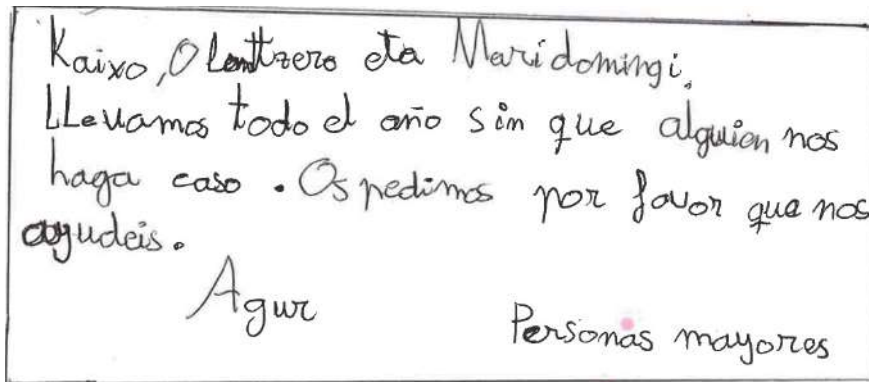 Kaixo, Olentzero eta Maridomingi.
Llevamos todo el año sin que alguien nos
haga caso. Os pedimos por favor que nos
ayudeis.
Agur
Personas mayores